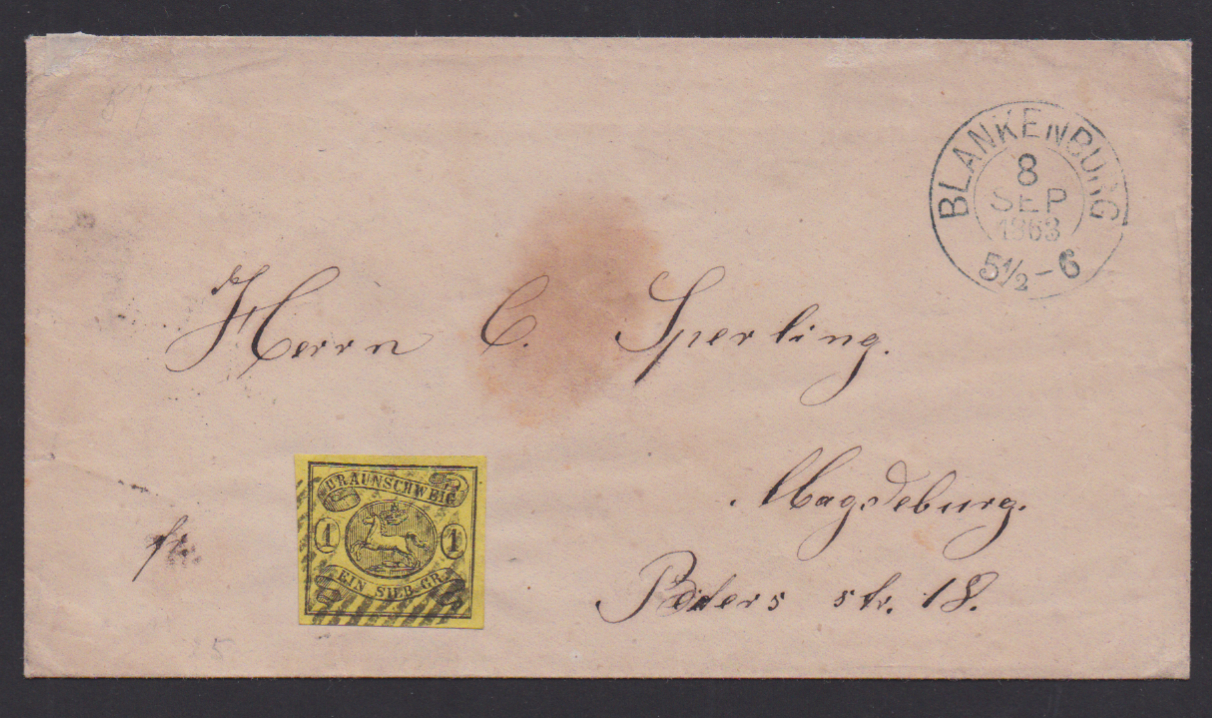 BLANKENBURG
8
SEP
1863
5½-6
Herrn C. Sperling.
Magdeburg.
Peters str. 18.
fr.
BRAUNSCHWEIG
1 1
EIN SILB.GR.